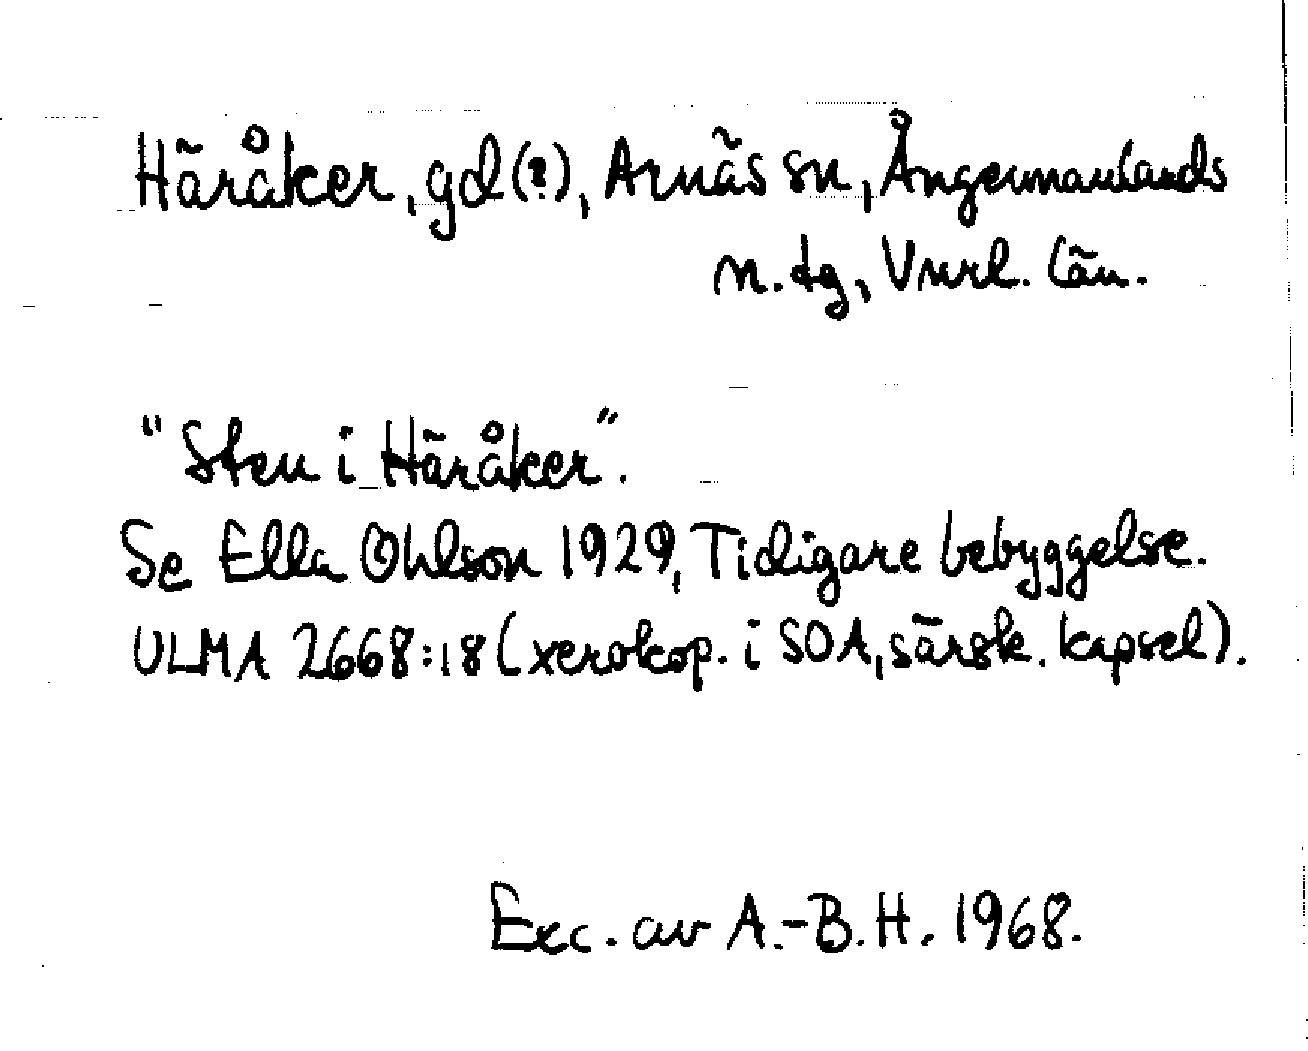 Häråker, gd(?), Arnäs sn, Ångermanlands
n. dg, Vnrl. län.
"Sten i Häråker".
Se Ella Ohlson 1929, Tidigare bebyggelse.
ULMA 2668:18 (xerokop. i SOA, särsk. kapsel).
Exc. av A.-B.H. 1968.